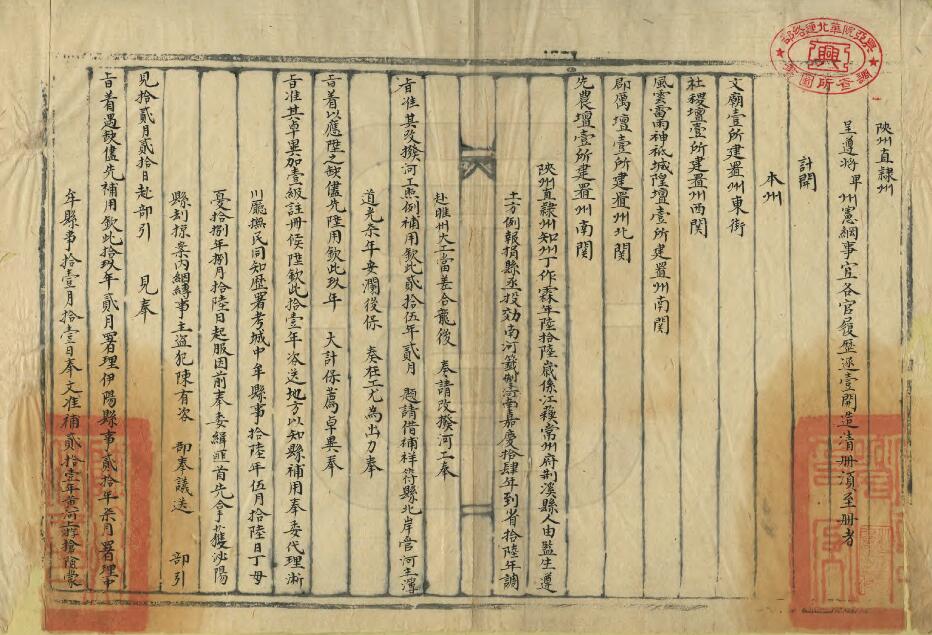 陝州直隸州
呈遵將卑州憲綱事宜各官履歷逐壹開造清冊須至冊者
計開
本州
文廟壹所建置州東街
社稷壇壹所建置州西関
風雲雷雨神祇城隍壇壹所建置州南関
郡厲壇壹所建置州北関
先農壇壹所建置州南関
陝州直隸州知州丁作霖年陸拾陸歲係江蘇常州府荆溪縣人由監生遵
土方例報捐縣丞投効南河籖掣河南嘉慶拾肆年到省拾陸年調
赴睢州大工當差合龍後 奏請改撥河工奉
旨准其改撥河工照例補用欽此貳拾伍年貳月 題請借補祥符縣北岸管河主簿
道光柒年安瀾後保 奏在工尤為出力奉
旨着以應陞之缺儘先陞用欽此玖年 大計保薦卓異奉
旨准其卓異加壹級註冊候陞欽此拾壹年咨送地方以知縣補用奉委代理淅
川廳撫民同知歷署考城中牟縣事拾陸年伍月拾陸日丁母
憂拾捌年捌月拾陸日起服因前奉委緝匪首先拿獲泌陽
縣刦掠案內綑縛事主盜犯陳有咨 部奉議送 部引
見拾貳月貳拾日赴部引 見奉
旨着遇缺儘先補用欽此拾玖年貳月署理伊陽縣事貳拾年柒月署理中
牟縣事拾壹月拾壹日奉文准補貳拾壹年黃河上游搶險蒙
興亞院華北連絡部
調查所圖書
興